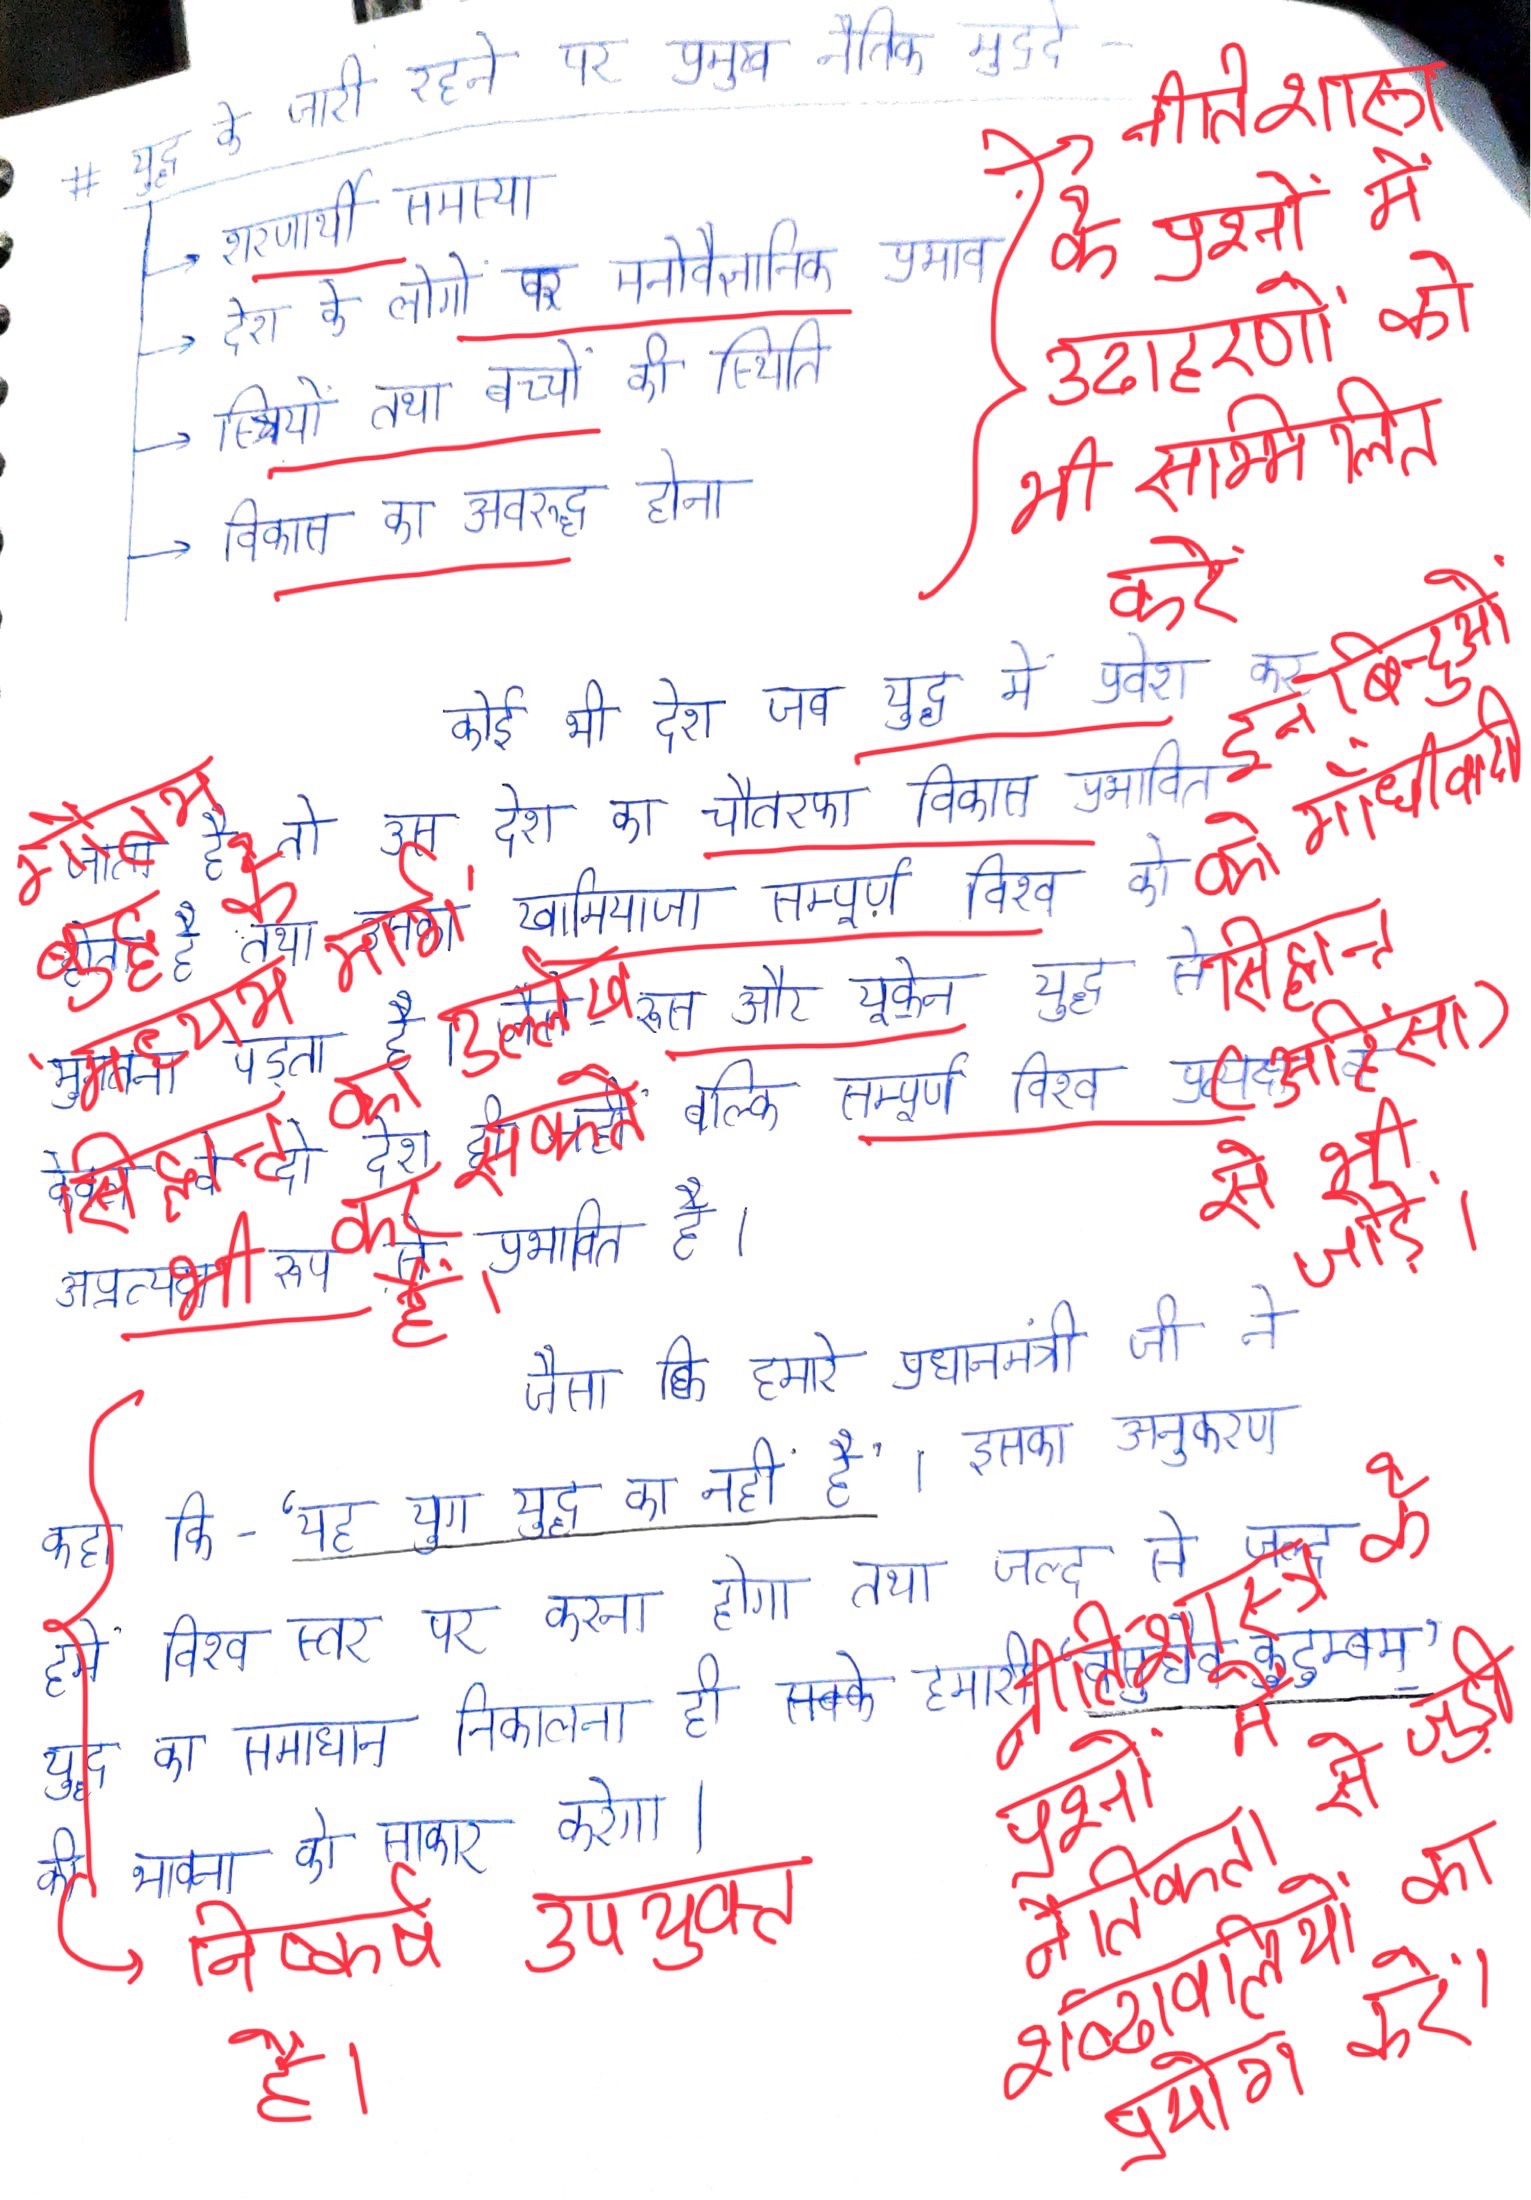 # युद्ध के जारी रहने पर प्रमुख नैतिक मुद्दे -
→ शरणार्थी समस्या
→ देश के लोगों पर मनोवैज्ञानिक प्रभाव
→ स्त्रियों तथा बच्चों की स्थिति
→ विकास का अवरुद्ध होना
नीतिशास्त्र
के प्रश्नों में
उदाहरणों को
भी सम्मिलित
करें
कोई भी देश जब युद्ध में प्रवेश कर
जाता है तो उस देश का चौतरफा विकास प्रभावित
होता है तथा इसका खामियाजा सम्पूर्ण विश्व को
भुगतना पड़ता है। जैसे रूस और यूक्रेन युद्ध से
केवल वे दो देश ही नहीं बल्कि सम्पूर्ण विश्व प्रत्यक्ष व
अप्रत्यक्ष रूप से प्रभावित है।
इन बिन्दुओं
को गाँधीवादी
सिद्धान्त
(अहिंसा)
से भी
जोड़ें।
बुद्ध के
मध्यम मार्ग
सिद्धान्त का उल्लेख
भी कर सकते
हैं।
जैसा कि हमारे प्रधानमंत्री जी ने
कहा कि - 'यह युग युद्ध का नहीं है'। इसका अनुकरण
हमें विश्व स्तर पर करना होगा तथा जल्द से जल्द
युद्ध का समाधान निकालना ही हमारी 'वसुधैव कुटुम्बम्'
की भावना को साकार करेगा।
→ निष्कर्ष उपयुक्त
है।
नीतिशास्त्र के
प्रश्नों में
नैतिकता से जुड़ी
शब्दावलियों का
प्रयोग करें।